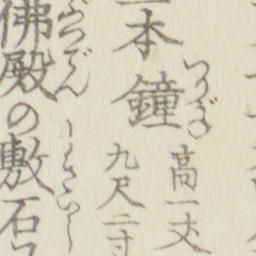 本鐘 つりがね 高一丈
九尺二寸
佛殿の敷石 ぶつでん しきいし